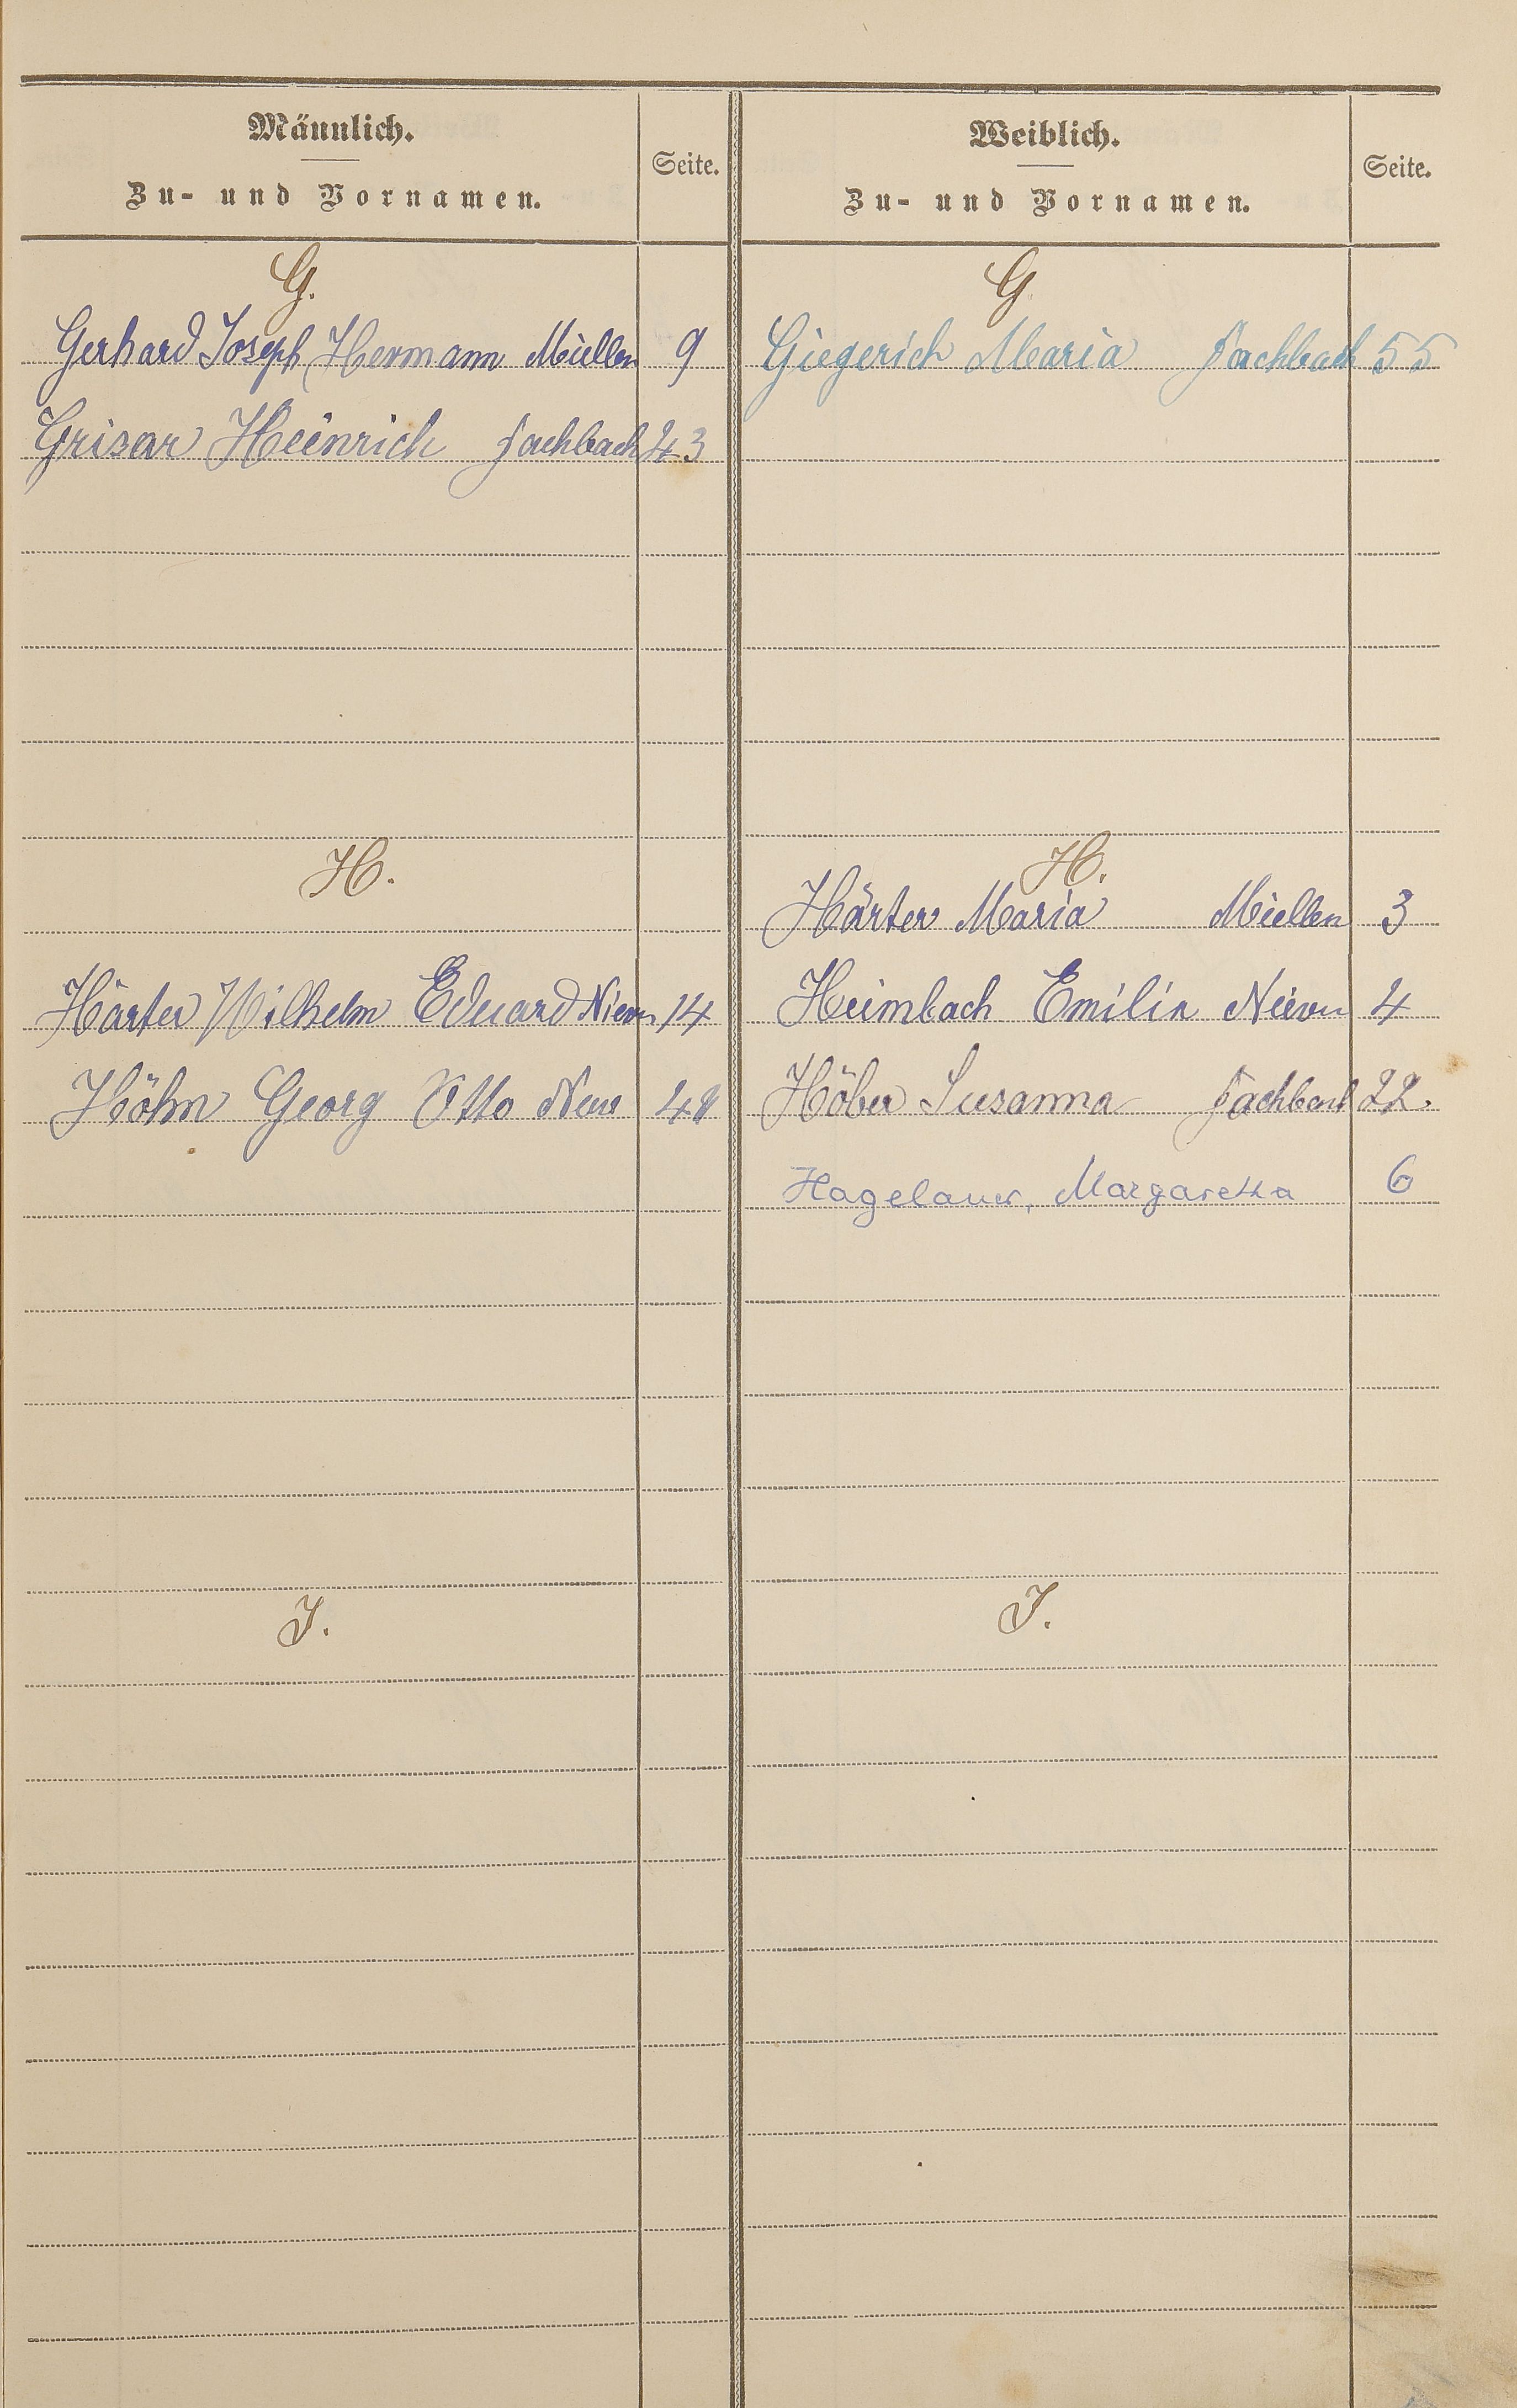 Männlich.
Zu- und Vornamen.
Seite.
G.
Gerhard Joseph Hermann Miellen 9
Grisar Heinrich Fachbach 43
H.
Härter Wilhelm Eduard Nievern 14
Höhn Georg Otto 48
J.
Weiblich.
Zu- und Vornamen.
Seite.
G
Giegerich Maria Fachbach 55
H.
Härter Maria Miellen 3
Heimbach Emilie Nievern 4
Höber Susanna Fachbach 22.
Hagelauer, Margaretha 6
J.